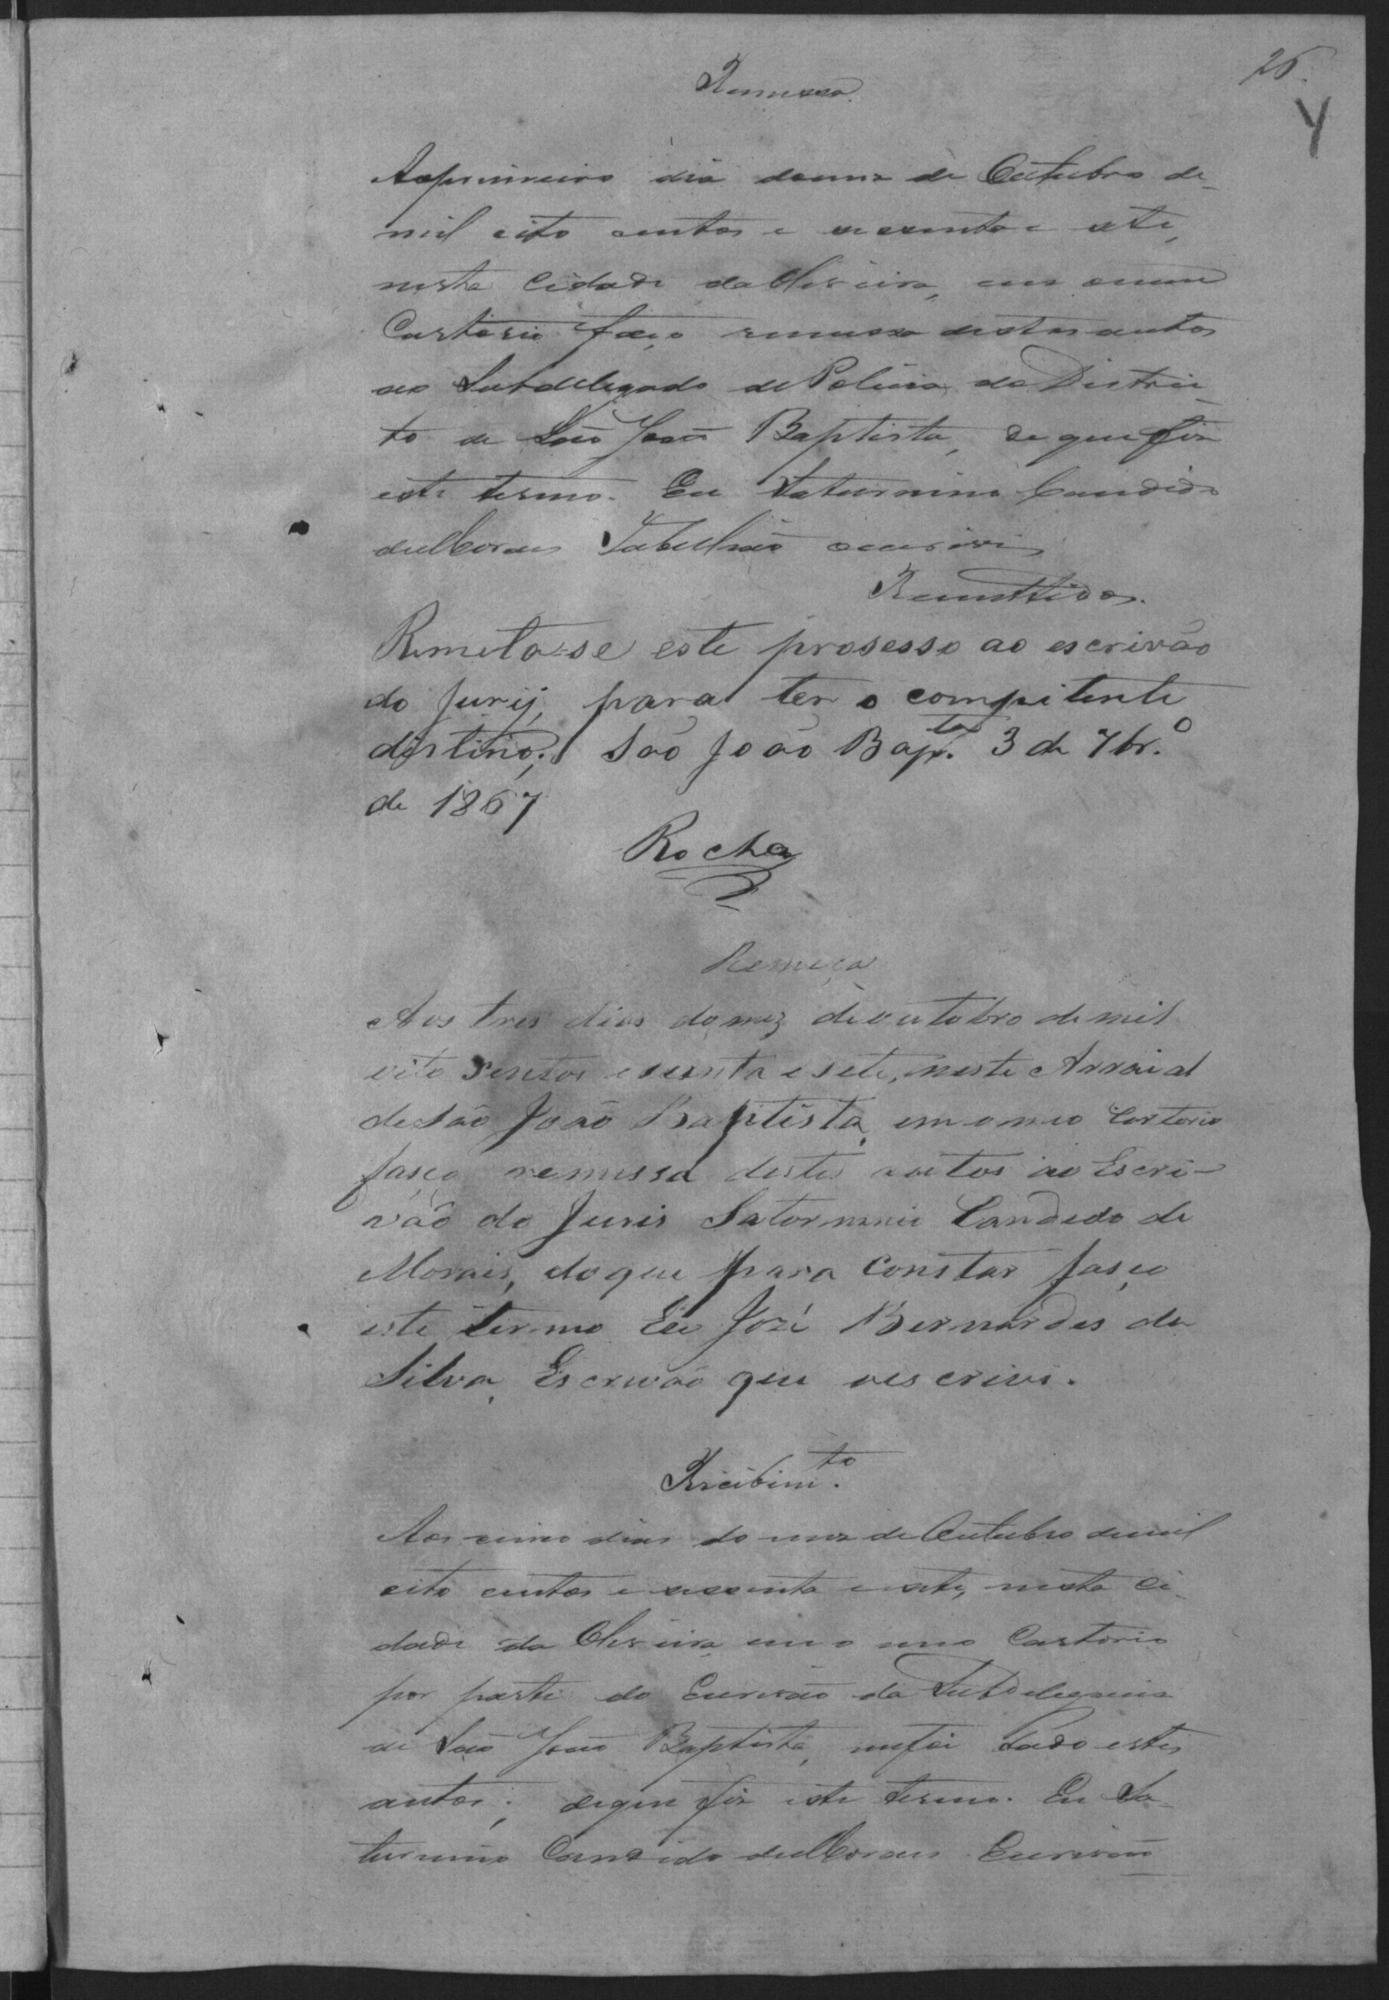 26.
Y
Remessa.
Aoprimeiro dia domez de Outubro de
mil oito centos e sessenta e sete,
nesta Cidade da Oliveira, em omeu
Cartorio faço remessa destes autos
ao Subdelegado de Policia do Distric
to de São João Baptista, de que fiz
este termo. Eu Saturnino Candido
deMoraes Tabellião oescrivi
Remettidos.
Remeta-se este prosesso ao escrivão
do Jurij, para ter o compitente
distino; São João Bap.ta 3 de 7br.o
de 1867
Rocha
Remeça
Aos tres dias domez deoutobro de mil
oito sentos esesenta esete, neste Arraial
deSão João Baptista, emomeo Cartorio
fasço remessa destes autos ao Escri-
vão do Juris Satornino Candedo de
Morais, doque para Constar fasço
este termo Eu José Bernardes da
Silva, Escrivão que oescrivi.
Recebim.to
Aos cinco dias do mez de Outubro demil
oito centos e sessenta esete, nesta Ci
dade da Oliveira em o meo Cartorio
por parte do Escrivão da Subdelegacia
de São João Baptista, mefoi dado estes
autos; deque fiz este termo. Eu Sa
turnino Candido deMoraes Escrivão